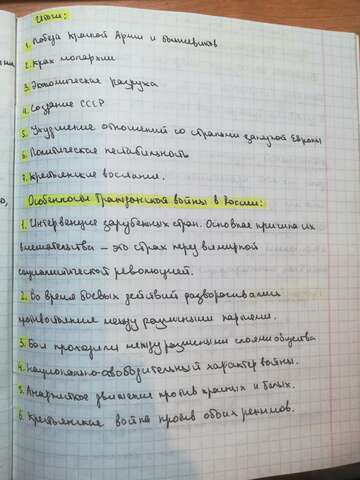 Итоги:
1. Победа Красной Армии и большевиков
2. Крах монархии
3. Экономическая разруха
4. Создание СССР
5. Ухудшение отношений со странами западной Европы
6. Политическая нестабильность
7. Крестьянские восстания.
Особенности Гражданской войны в России:
1. Интервенция зарубежных стран. Основная причина их
вмешательства – это страх перед всемирной
социалистической революцией.
2. Во время боевых действий разворачивались
противостояние между различными партиями.
3. Бои проходили между разными слоями общества
4. национально-освободительный характер войны.
5. Анархистское движение против красных и белых.
6. Крестьянские война против обоих режимов.